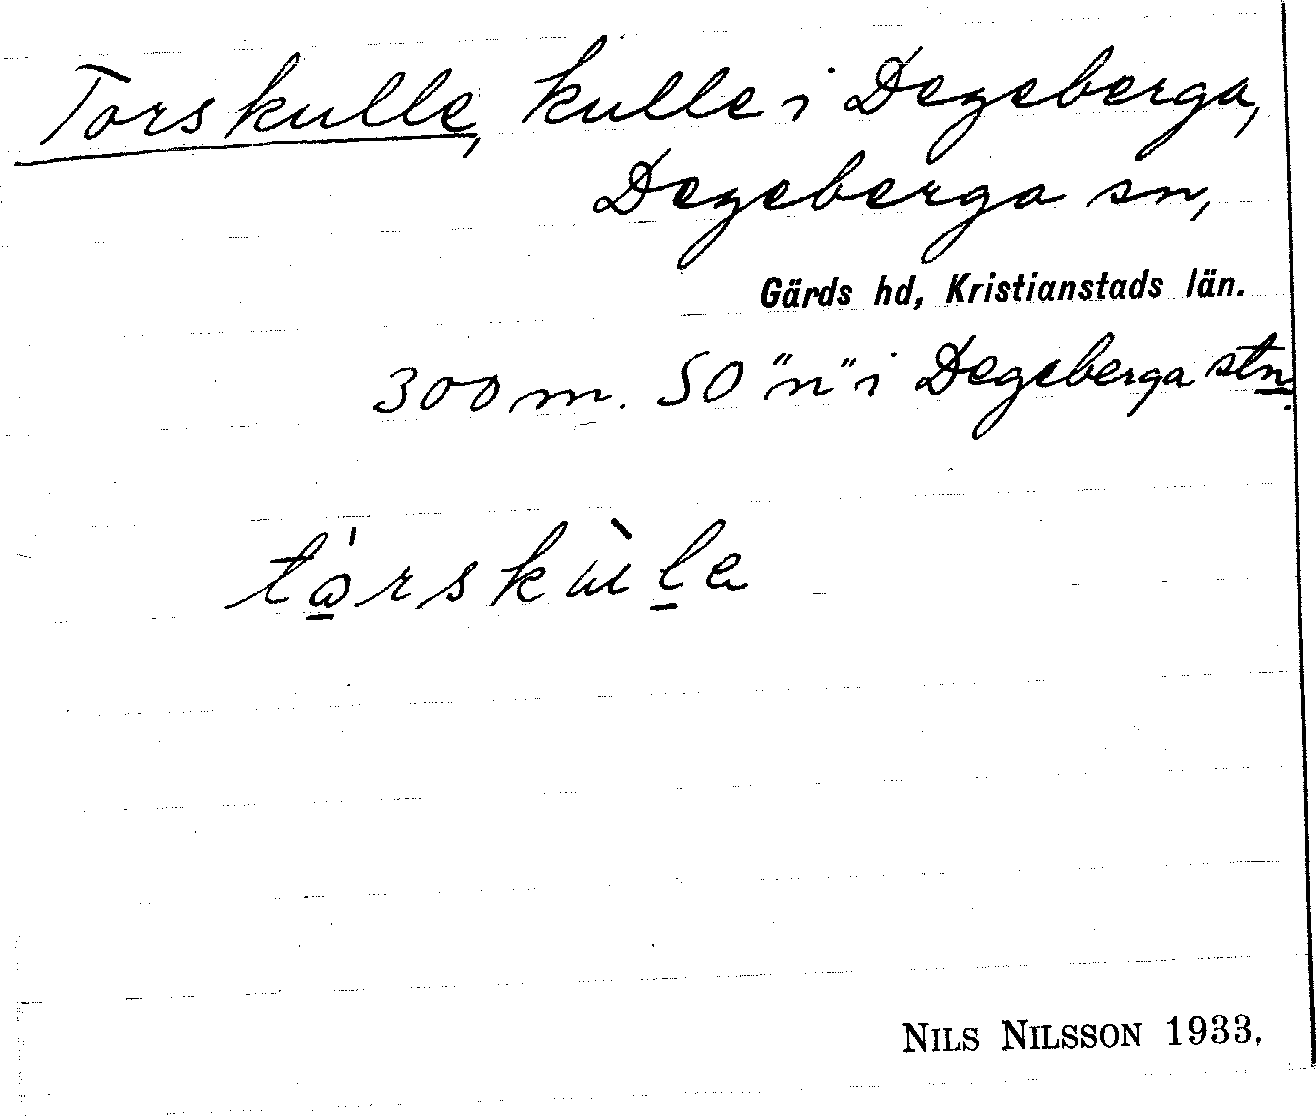 Torskulle, kulle i Degeberga,
Degeberga sn,
Gärds hd, Kristianstads län.
300 m. SO "n" i Degeberga stn.
tòrskùla
NILS NILSSON 1933.